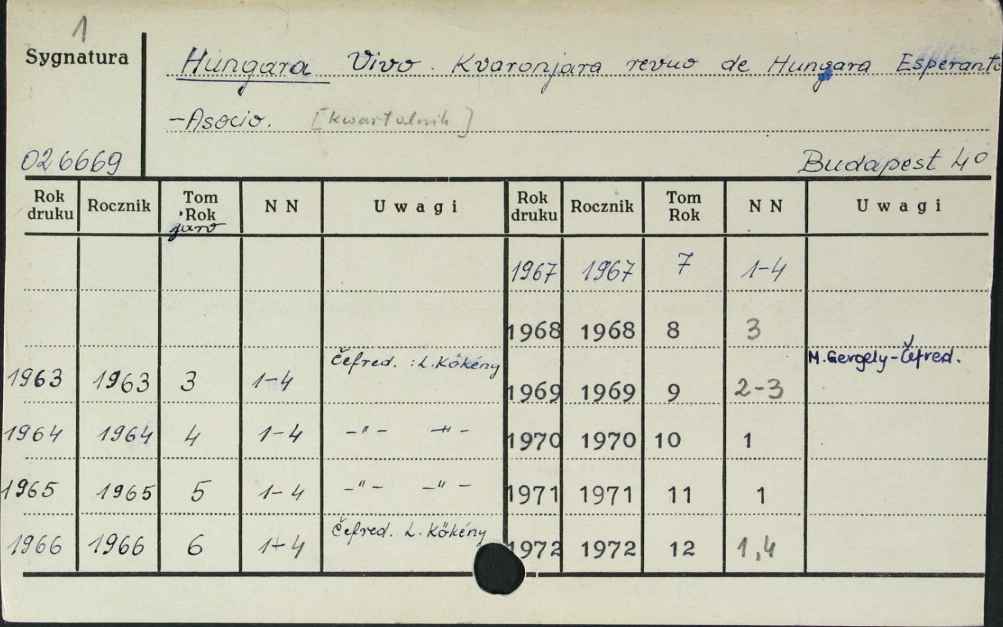 1
Sygnatura
Hungara Vivo. Kvaronjara revuo de Hungara Esperanto
-Asocio. [kwartalnik]
026669 Budapest 4º
Rok druku Rocznik Tom Rok jaro N N Uwagi Rok druku Rocznik Tom Rok N N Uwagi
1967 1967 7 1-4
1968 1968 8 3
1963 1963 3 1-4 Ĉefred. : L. Kökény 1969 1969 9 2-3 M. Gergely-Ĉefred.
1964 1964 4 1-4 -"- -"- 1970 1970 10 1
1965 1965 5 1-4 -"- -"- 1971 1971 11 1
1966 1966 6 1-4 Ĉefred. L. Kökény 1972 1972 12 1,4